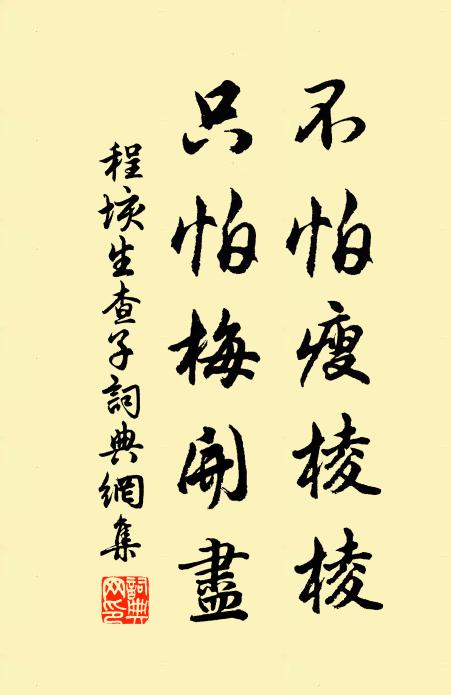 不怕瘦棱棱
只怕梅開盡
程垓生查子詞典網集
詞典网印